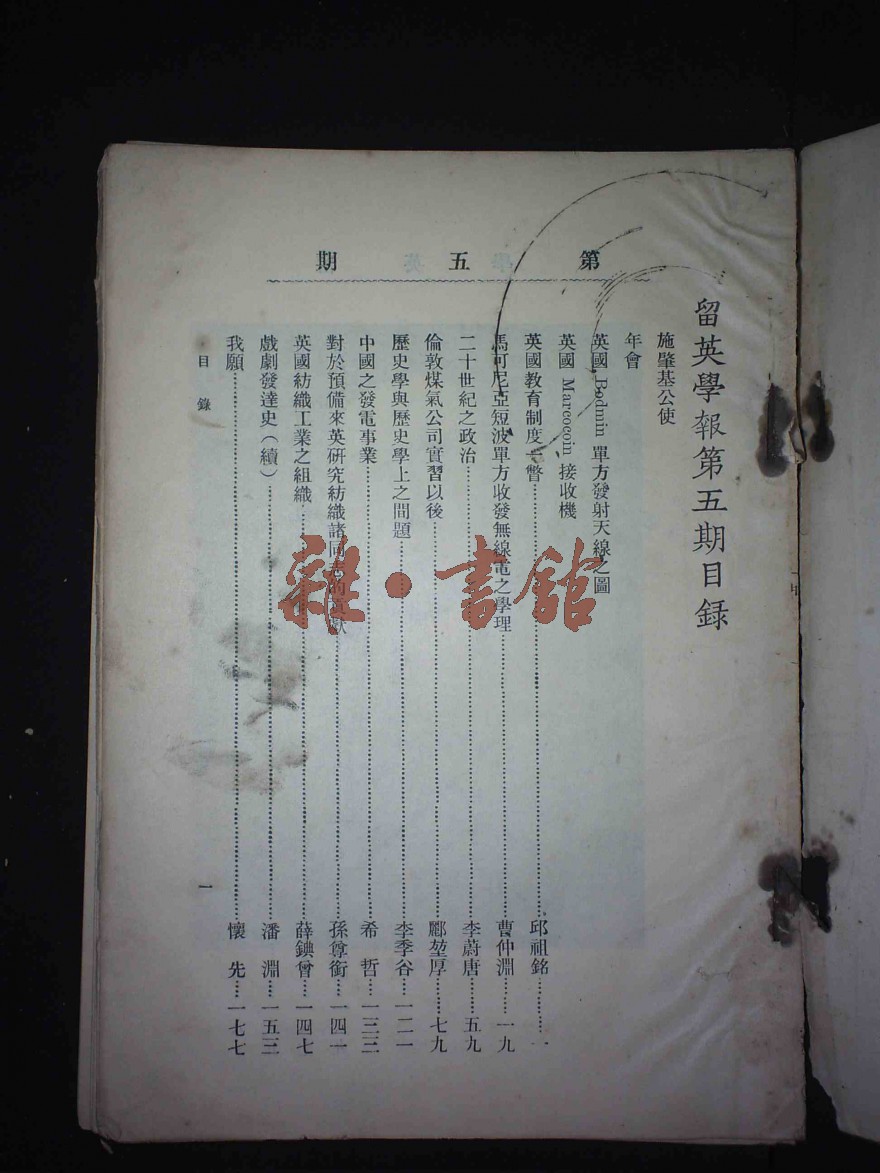 第五期
留英學報第五期目録
施肇基公使
年會
英國 Bodmin 單方發射天線之圖
英國 Marcocoin 接收機
英國教育制度一瞥……邱祖銘……一
馬可尼亞短波單方收發無線電之學理……曹仲淵……一九
二十世紀之政治……李蔚唐……五九
倫敦煤氣公司實習以後……酈堃厚……七九
歷史學與歷史學上之問題……李季谷……一二一
中國之發電事業……希哲……一三三
對於預備來英研究紡織諸同志的貢獻……孫尊銜……一四一
英國紡織工業之組織……薛鍈曾……一四七
戲劇發達史（續）……潘淵……一五三
我願……懷先……一七七
目錄
一
雜·書館